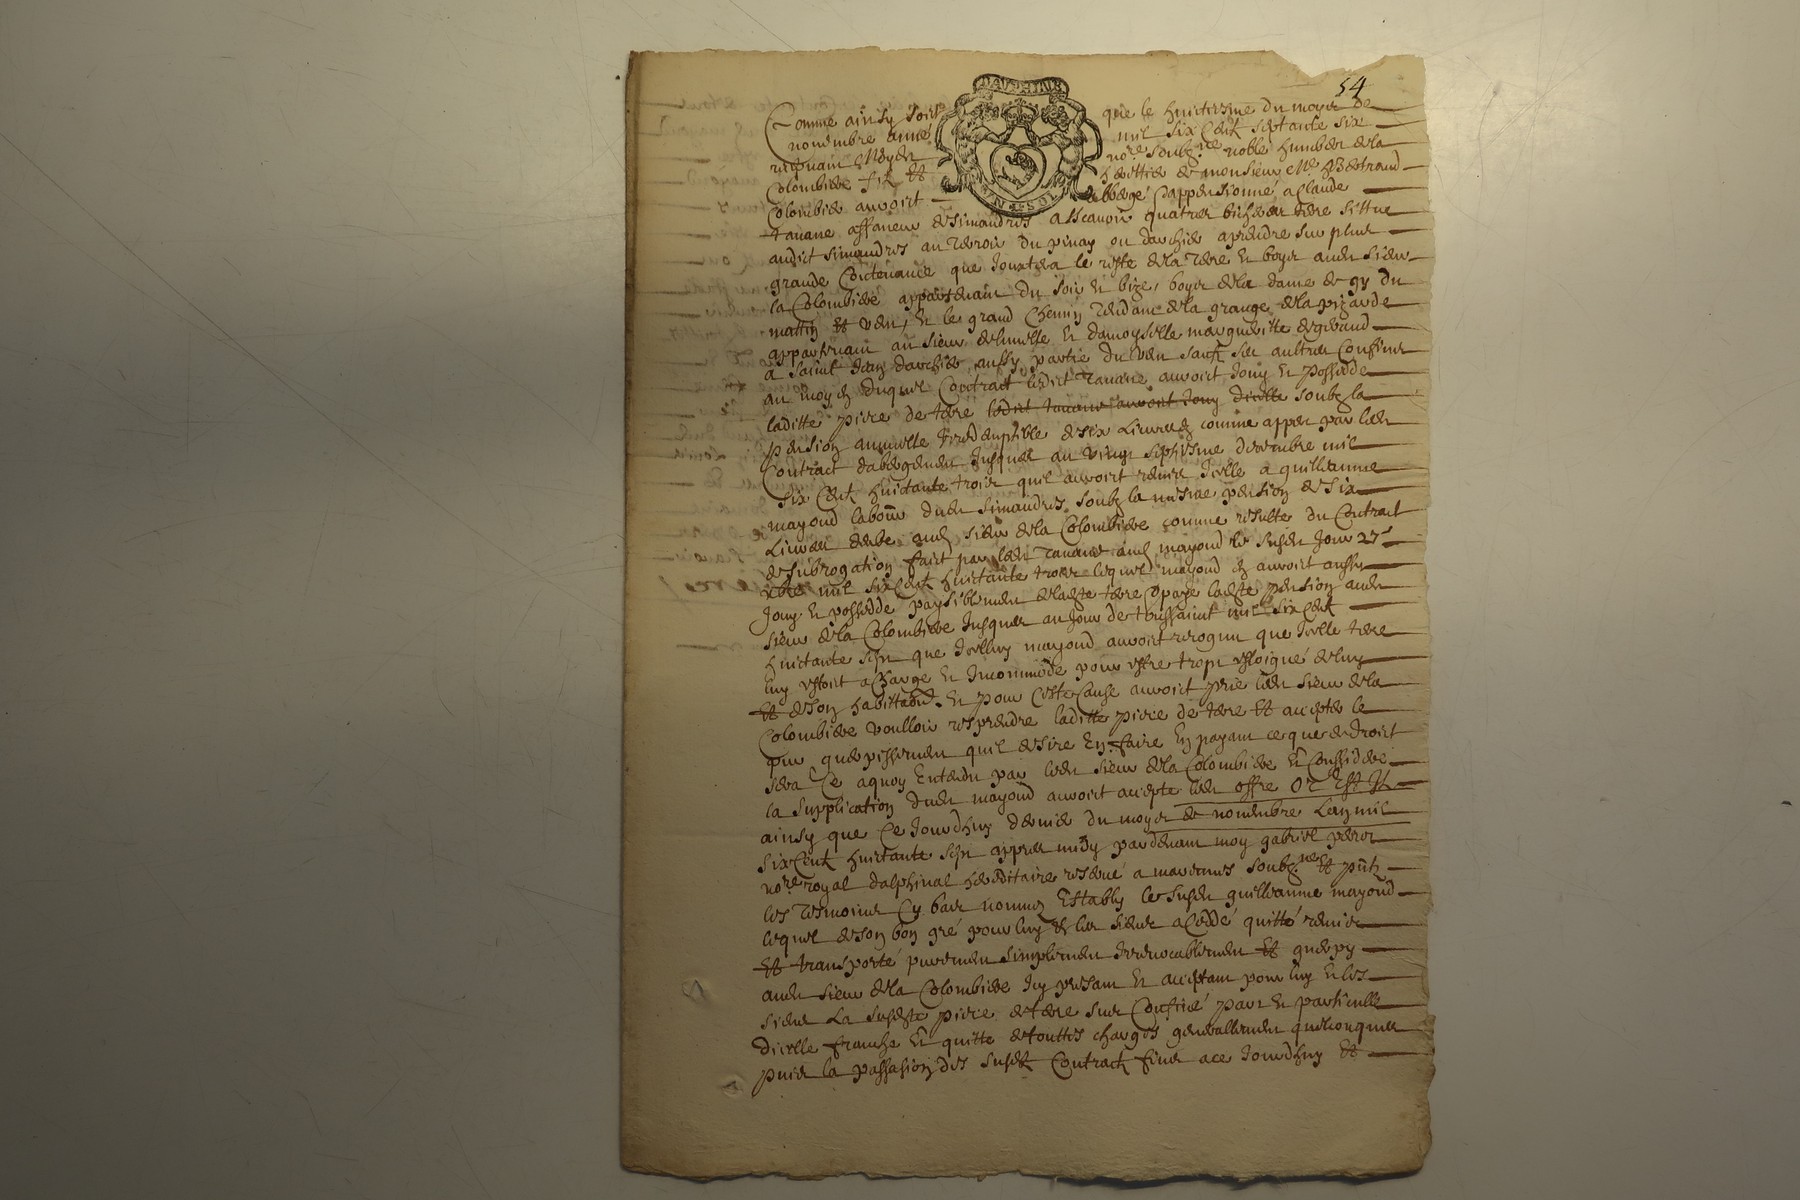 54
DAUPHINE
UN SOL
Comme ainsy soict que le huictiesme du moys de
novembre année mil six centz septante six
recepvant Moyen no.re soubz.ne noble humbert de la
Colombiere filz et herittier de monsieur M.re Bertrand
Colombiere auroict abbergé et appensionné a Claude
tavane affaneur de simandres assçavoir quatres bicherées terre sittue
audict simandres au terroir du pinay ou darchier a prendre sur plus
grande Contenance que Jouxtera le reste de la terre et boys audit sieur
la Colombiere appartenant du soir et bize, boys de la dame de gy du
mattin et vent, et le grand Chemin tendant de la grange de la pizarde
appartenant au sieur et damoyselle margueritte degerand
a saint Jean darchier aussy partie du vent sauf ses aultres Confins
au moyen duquel Contract ledict Tavane auroict Jouy et possedde
laditte piece de terre ledict tavane auroict Jouy dicelle soubz la
pension annuelle Irredemptible de six Livres comme appert par ledit
Contract dabergement Jusques au vingt septiesme decembre mil
six centz huictante trois quil auroict remise Icelle a guilleaume
mayoud labour. dudit simandres soubz la mesme pension de six
Livres deube audit sieur de la Colombiere comme resulte du Contract
de subrogation faict par ledit tavane audit mayoud le susdit Jour 27e
xbre mil six centz huictante trois lequel mayoud en auroict aussy
Jouy et possedde paysiblement de ladite terre et payé ladite pension audit
sieur de la Colombiere Jusques au Jour de toussaint mil six centz
huictante sept que Icelluy mayoud auroict recognu que Icelle terre
luy estoit a Charge et Incommode pour estre trop esloigné de luy
et de son habittaon. Et pour cette Cause auroict prié ledit sieur de la
Colombiere voulloir resprendre laditte piece de terre et accepter le
pur querpissement quil desire en faire En payant ce que de droict
sera Ce a quoy Entendu par ledit sieur de la Colombiere et Considdere
la supplication dudit mayoud auroict accepté ledit offre Or Est Il
ainsy que Ce Jourdhuy dernier du moys de novembre Lan mil
six centz huictante sept appres midy pardevant moy gabriel perrot
no.re royal dalphinal hereditaire reservé a marennes soubz.ne et pntz
les tesmoins Cy bas nommez Estably le susdit guilleaume mayoud
lequel de son bon gré pour luy et les siens a Ceddé quitté remis
et transporté purement simplement Irrevocablement et querpy
audit sieur de la Colombiere Icy presant et acceptant pour luy et les
siens La susdite piece de terre sus Confiné part et particulle
dicelle franche et quitte de touttes charges generallement quelconques
puis la passasion des susditz Contractz fines a ce Jourdhuy et